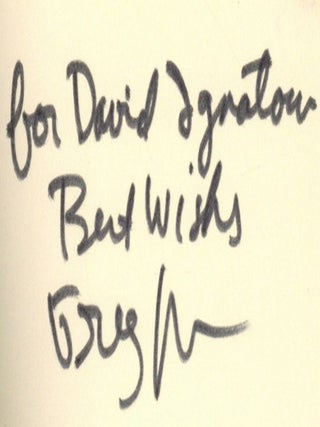 for David Ignatow
Best Wishes
Greg